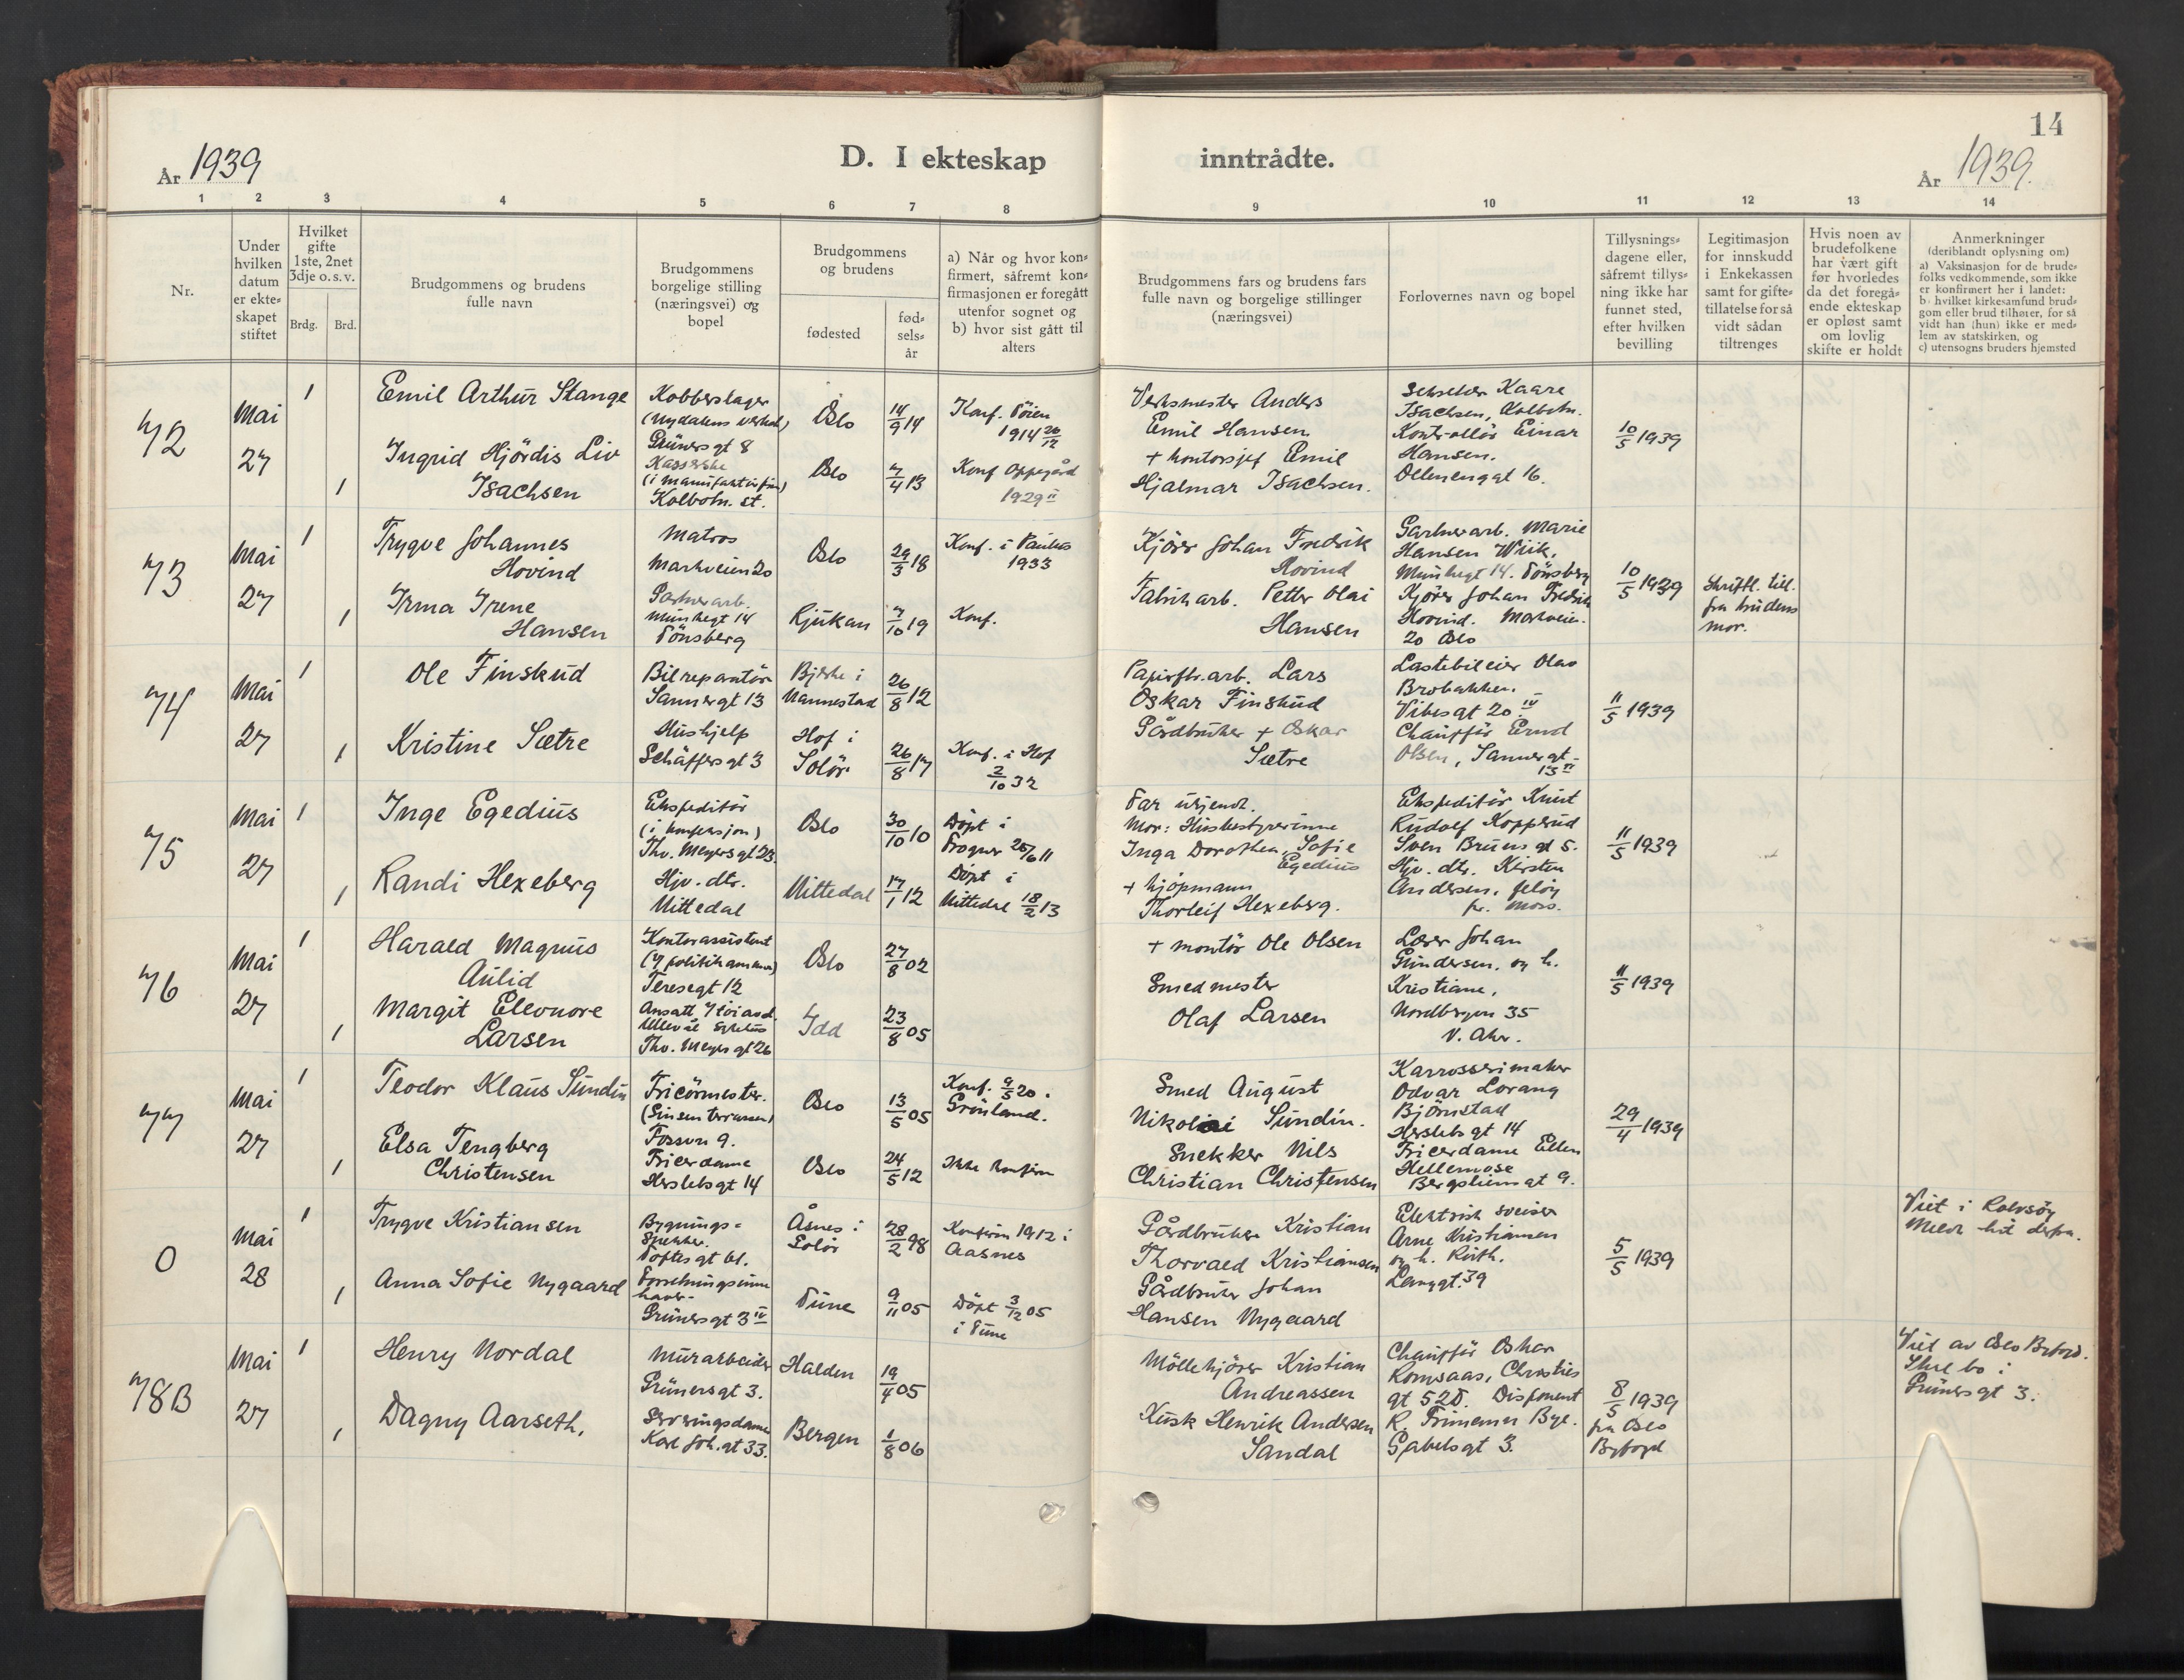 År 1939
D. I ekteskap inntrådte.
14
År 1939.
1 2 3 4 5 6 7 8 9 10 11 12 13 14
Nr.
Under
hvilken
datum
er ekte-
skapet
stiftet
Hvilket
gifte
1ste, 2net
3dje o.s.v.
Brdg. Brd.
Brudgommens og brudens
fulle navn
Brudgommens
borgelige stilling
(næringsvei) og
bopel
Brudgommens
og brudens
fødested
fød-
sels-
år
a) Når og hvor kon-
firmert, såfremt kon-
firmasjonen er foregått
utenfor sognet og
b) hvor sist gått til
alters
Brudgommens fars og brudens fars
fulle navn og borgelige stillinger
(næringsvei)
Forlovernes navn og bopel
Tillysnings-
dagene eller,
såfremt tillys-
ning ikke har
funnet sted,
efter hvilken
bevilling
Legitimasjon
for innskudd
i Enkekassen
samt for gifte-
tillatelse for så
vidt sådan
tiltrenges
Hvis noen av
brudefolkene
har vært gift
før hvorledes
da det foregå-
ende ekteskap
er opløst samt
om lovlig
skifte er holdt
Anmerkninger
(deriblandt oplysning om)
a) Vaksinasjon for de brude-
folks vedkommende, som ikke
er konfirmert her i landet:
b) hvilket kirkesamfund brud-
gom eller brud tilhører, for så
vidt han (hun) ikke er med-
lem av statskirken, og
c) utensogns bruders hjemsted
72
Mai
27
1
1
Emil Arthur Stange
Ingrid Hjördis Liv
Isachsen
Kobberslager
Grünersgt 8
Kolbotn. st.
Oslo
Oslo
14/9 14
7/4 13
Konf. Töien
1914 20/12
Konf Oppegård
1929
Verksmester Anders
Emil Hansen
+ kontorsjef Emil
Hjalmar Isachsen.
Kaare
Isachsen, Kolbotn.
Kontrollör Einar
Hansen.
16.
10/5 1939
73
Mai
27
1
1
Trygve Johannes
Hovind
Irma Irene
Hansen
Matros
Markveien 20
Gartnerarb.
Munkegt 14
Tönsberg
Oslo
Rjukan
29/3 18
7/10 19
Konf. i Paulus
1933
Konf.
Kjörer Johan Fredrik
Hovind
Fabrikarb. Petter Olai
Hansen
Gartnerarb. Marie
Hansen Wiik.
Munkegt 14. Tönsberg
Kjörer Johan Fredrik
Hovind. Markveien
20 Oslo
10/5 1939
Skriftl. till.
fra brudens
mor.
74
Mai
27
1
1
Ole Finskud
Kristine Sætre
Bilreparatör
Sannergt 13
Hushjelp
Schäffersgt 3
Bjerke i
Nannestad
Hof i
Solör
26/8 12
26/8 17
Konf. i Hof
2/10 32
Papirfbr.arb. Lars
Oskar Finskud
Gårdbruker + Oskar
Sætre
Lastebileier Olav
Brobakken.
Vibesgt 20 IV
Chaufför
Olsen, Sannergt
13
11/5 1939
75
Mai
27
1
1
Inge Egedius
Randi Hexeberg
Ekspeditör
(i konfeksjon)
Thv. Meyersgt 23
Hjv. dtr.
Nittedal
Oslo
Nittedal
30/10 10
17/1 12
Döpt i
Frogner 25/6 11
Döpt i
Nittedal 18/2 13
Far ukjendt.
Mor: Husbestyrerinne
Inga Dorothea Sofie
Egedius
+ kjöpmann
Thorleif Hexeberg.
Ekspeditör Knut
Rudolf Kopperud
Sven Bruuns gt 5.
Hjv. dtr. Kirsten
Andersen. Jelöy
pr. Moss.
11/5 1939
76
Mai
27
1
1
Harald Magnus
Aulid
Margit Eleonore
Larsen
Kontorassistent
Teresegt 12
Thv. Meyersgt 26
Oslo
Idd
27/8 02
23/8 05
+ montör Ole Olsen
Smedmester
Olaf Larsen
Lærer Johan
Gundersen. og h.
Kristiane,
Nordbergvn 35
V. Aker.
11/5 1939
77
Mai
27
1
1
Teodor Klaus Sundin
Elsa Tengberg
Christensen
Fricörmester.
(Sinsen terrassen)
Fossvn 9.
Fricerdame
Herslebsgt 14
Oslo
Oslo
13/5 05
24/5 12
Konf. 9/5 20.
Grönland.
Ikke konfirm
Smed August
Nikolai Sundin.
Snekker Nils
Christian Christensen
Karrosserimaker
Odvar Lorang
Björnstad
Herslebsgt 14
Fricerdame Ellen
Hellemose
Bergsliensgt 9.
29/4 1939
0
Mai
28
1
1
Trygve Kristiansen
Anna Sofie Nygaard
Bygnings-
snekker.
Toftesgt 61.
Grünersgt 3 IV
Åsnes i
Solör
Tune
28/2 98
9/11 05
Konfirm 1912 i
Aasnes
Döpt 3/12 05
i Tune
Gårdbruker Kristian
Thorvald Kristiansen
Gårdbruker Johan
Hansen Nygaard
Elektrisk sveiser
Arne Kristiansen
og h. Ruth.
Langgt. 39
5/5 1939
Viet i Rolvsöy
Meldt hit derfra.
78B
Mai
27
1
1
Henry Nordal
Dagny Aarseth.
Murarbeider
Grünersgt 3.
Serveringsdame
Karl Joh. gt 33.
Halden
Bergen
19/4 05
1/8 06
Möllekjörer Kristian
Andreassen
Kusk Henrik Andersen
Sandal
Chaufför Oskar
Romsaas, Christies
gt 52B. Disponent
R. Trimann Bye.
Gabelsgt 3.
8/5 1939
fra Oslo
Byfogd
Viet av Oslo Byfogd.
Skal bo i
Grünersgt 3.